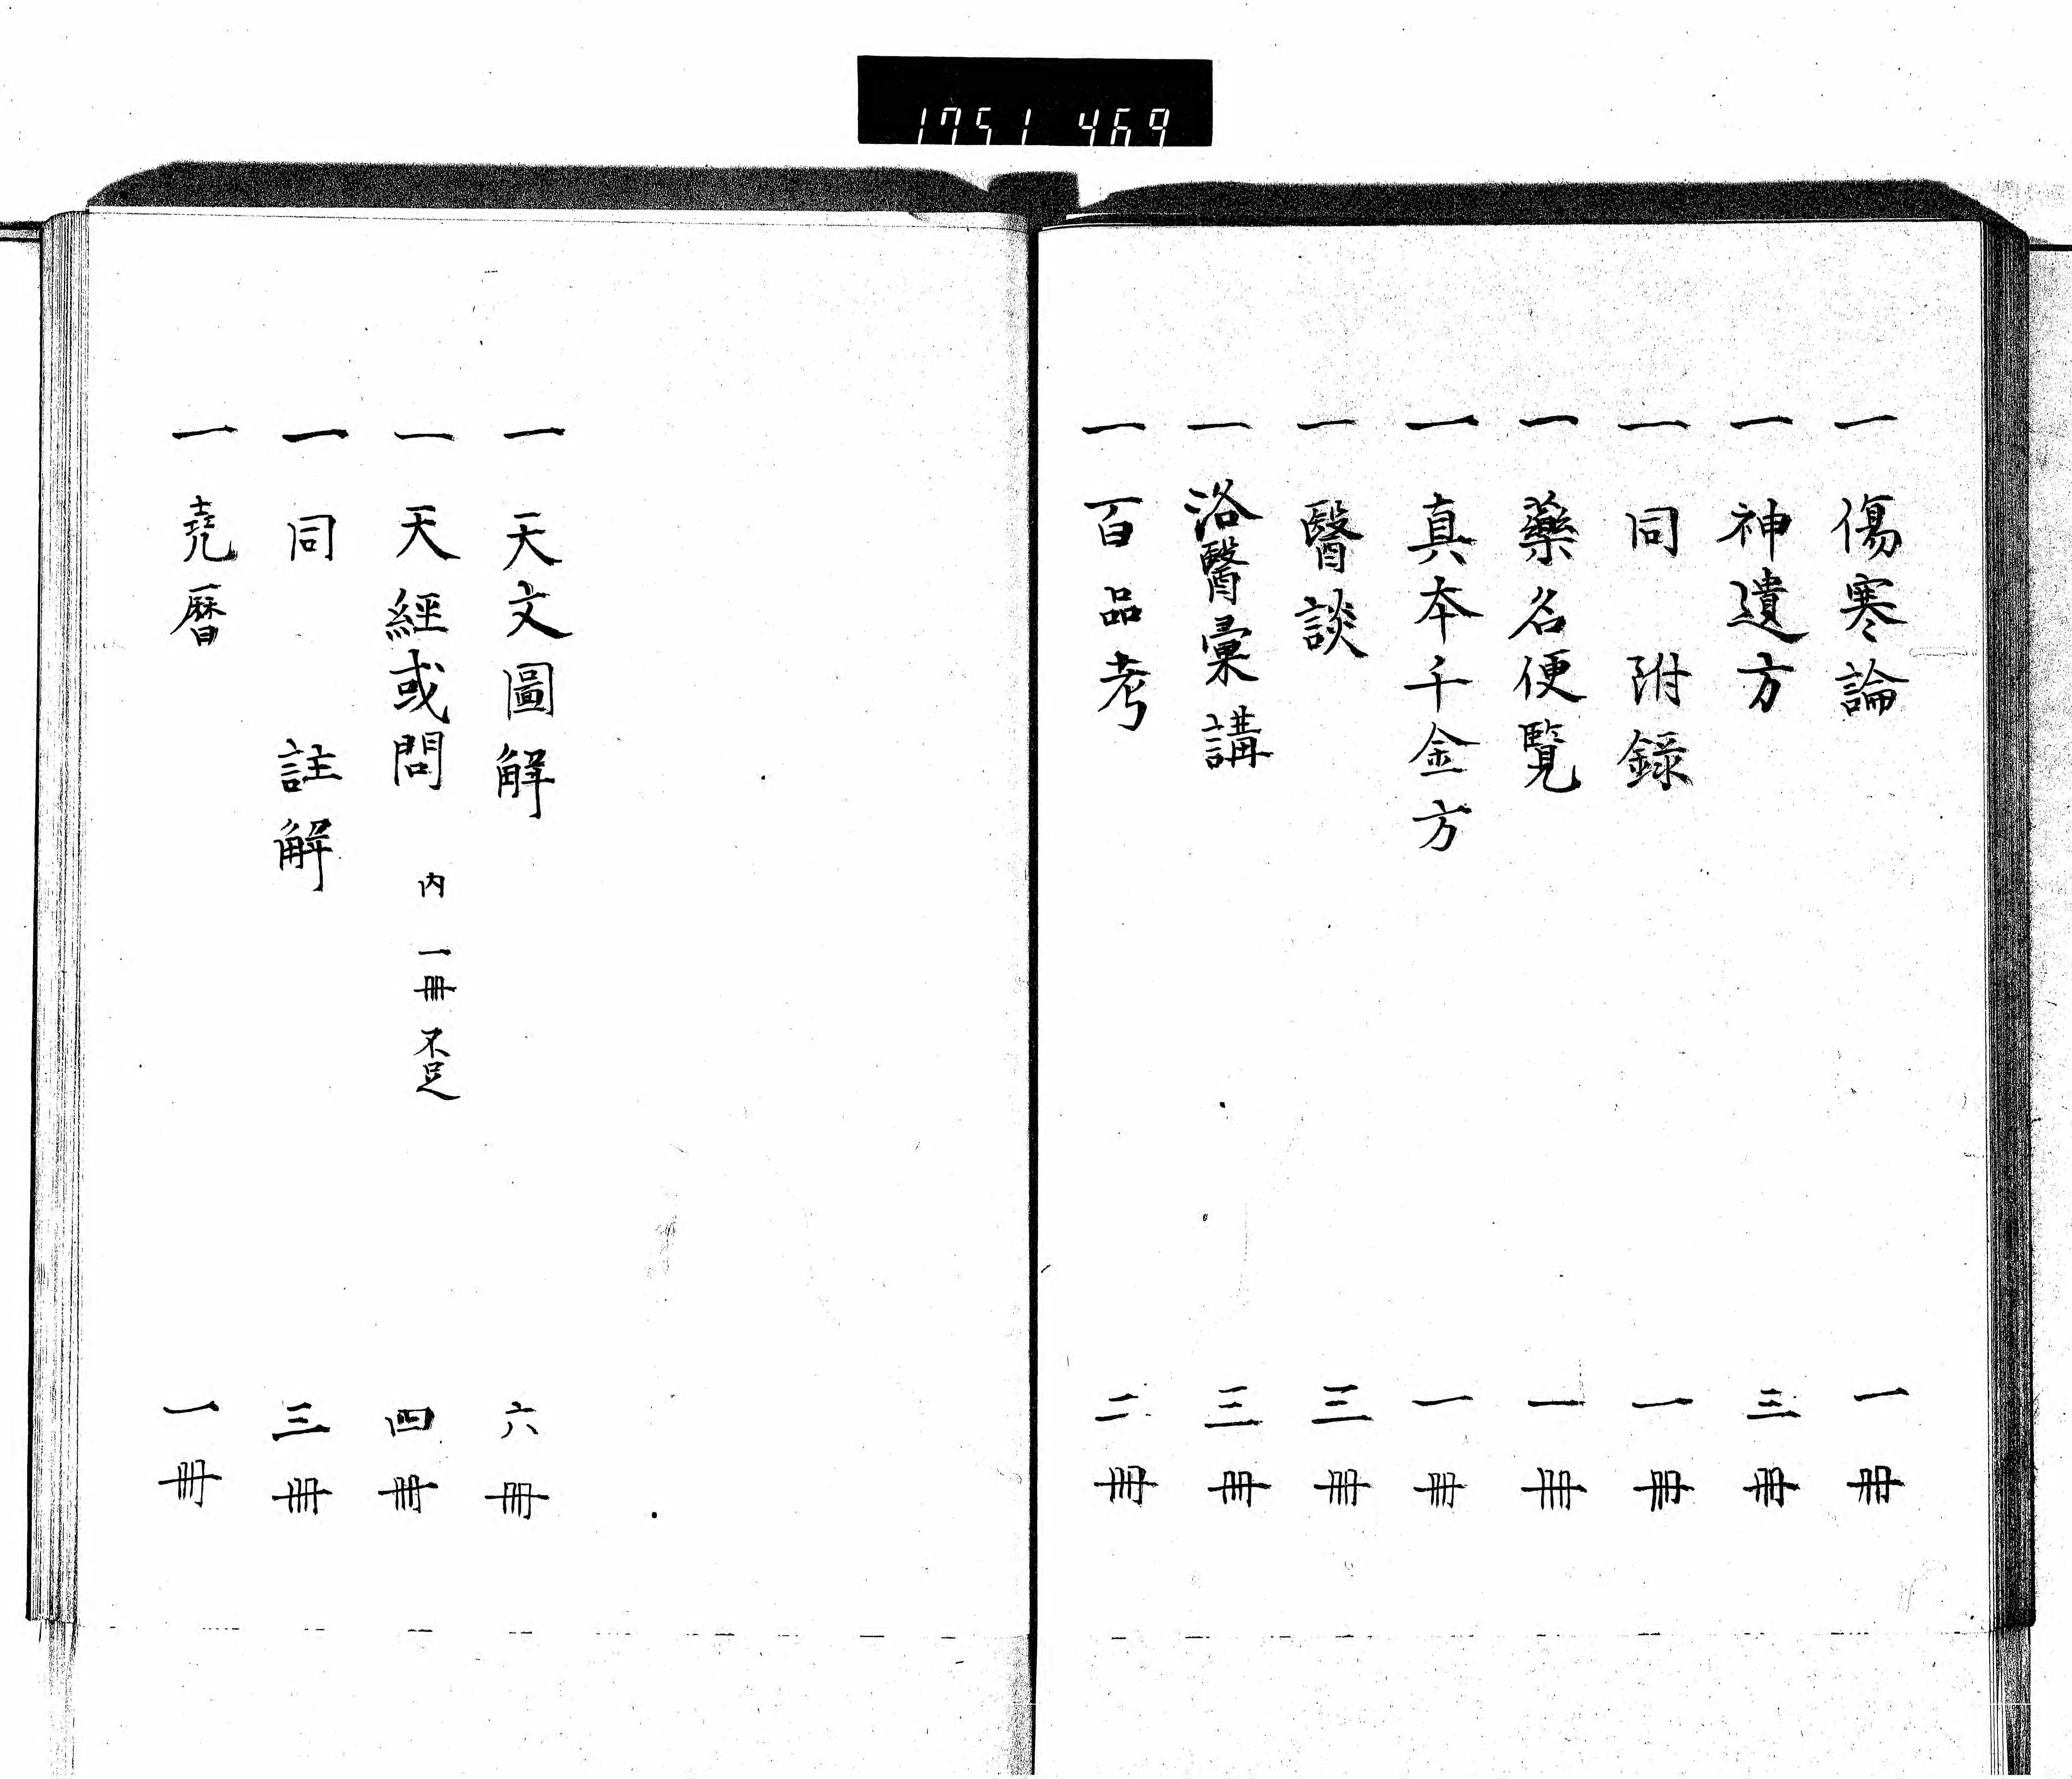 1751 469
一 傷寒論 一冊
一 神遺方 三冊
一 同 附録 一冊
一 藥名便覧 一冊
一 真本千金方 一冊
一 醫談 三冊
一 洛醫彙講 三冊
一 百品考 二冊
一 天文圖解 六冊
一 天經或問 内 一冊不足 四冊
一 同 註解 三冊
一 尭暦 一冊